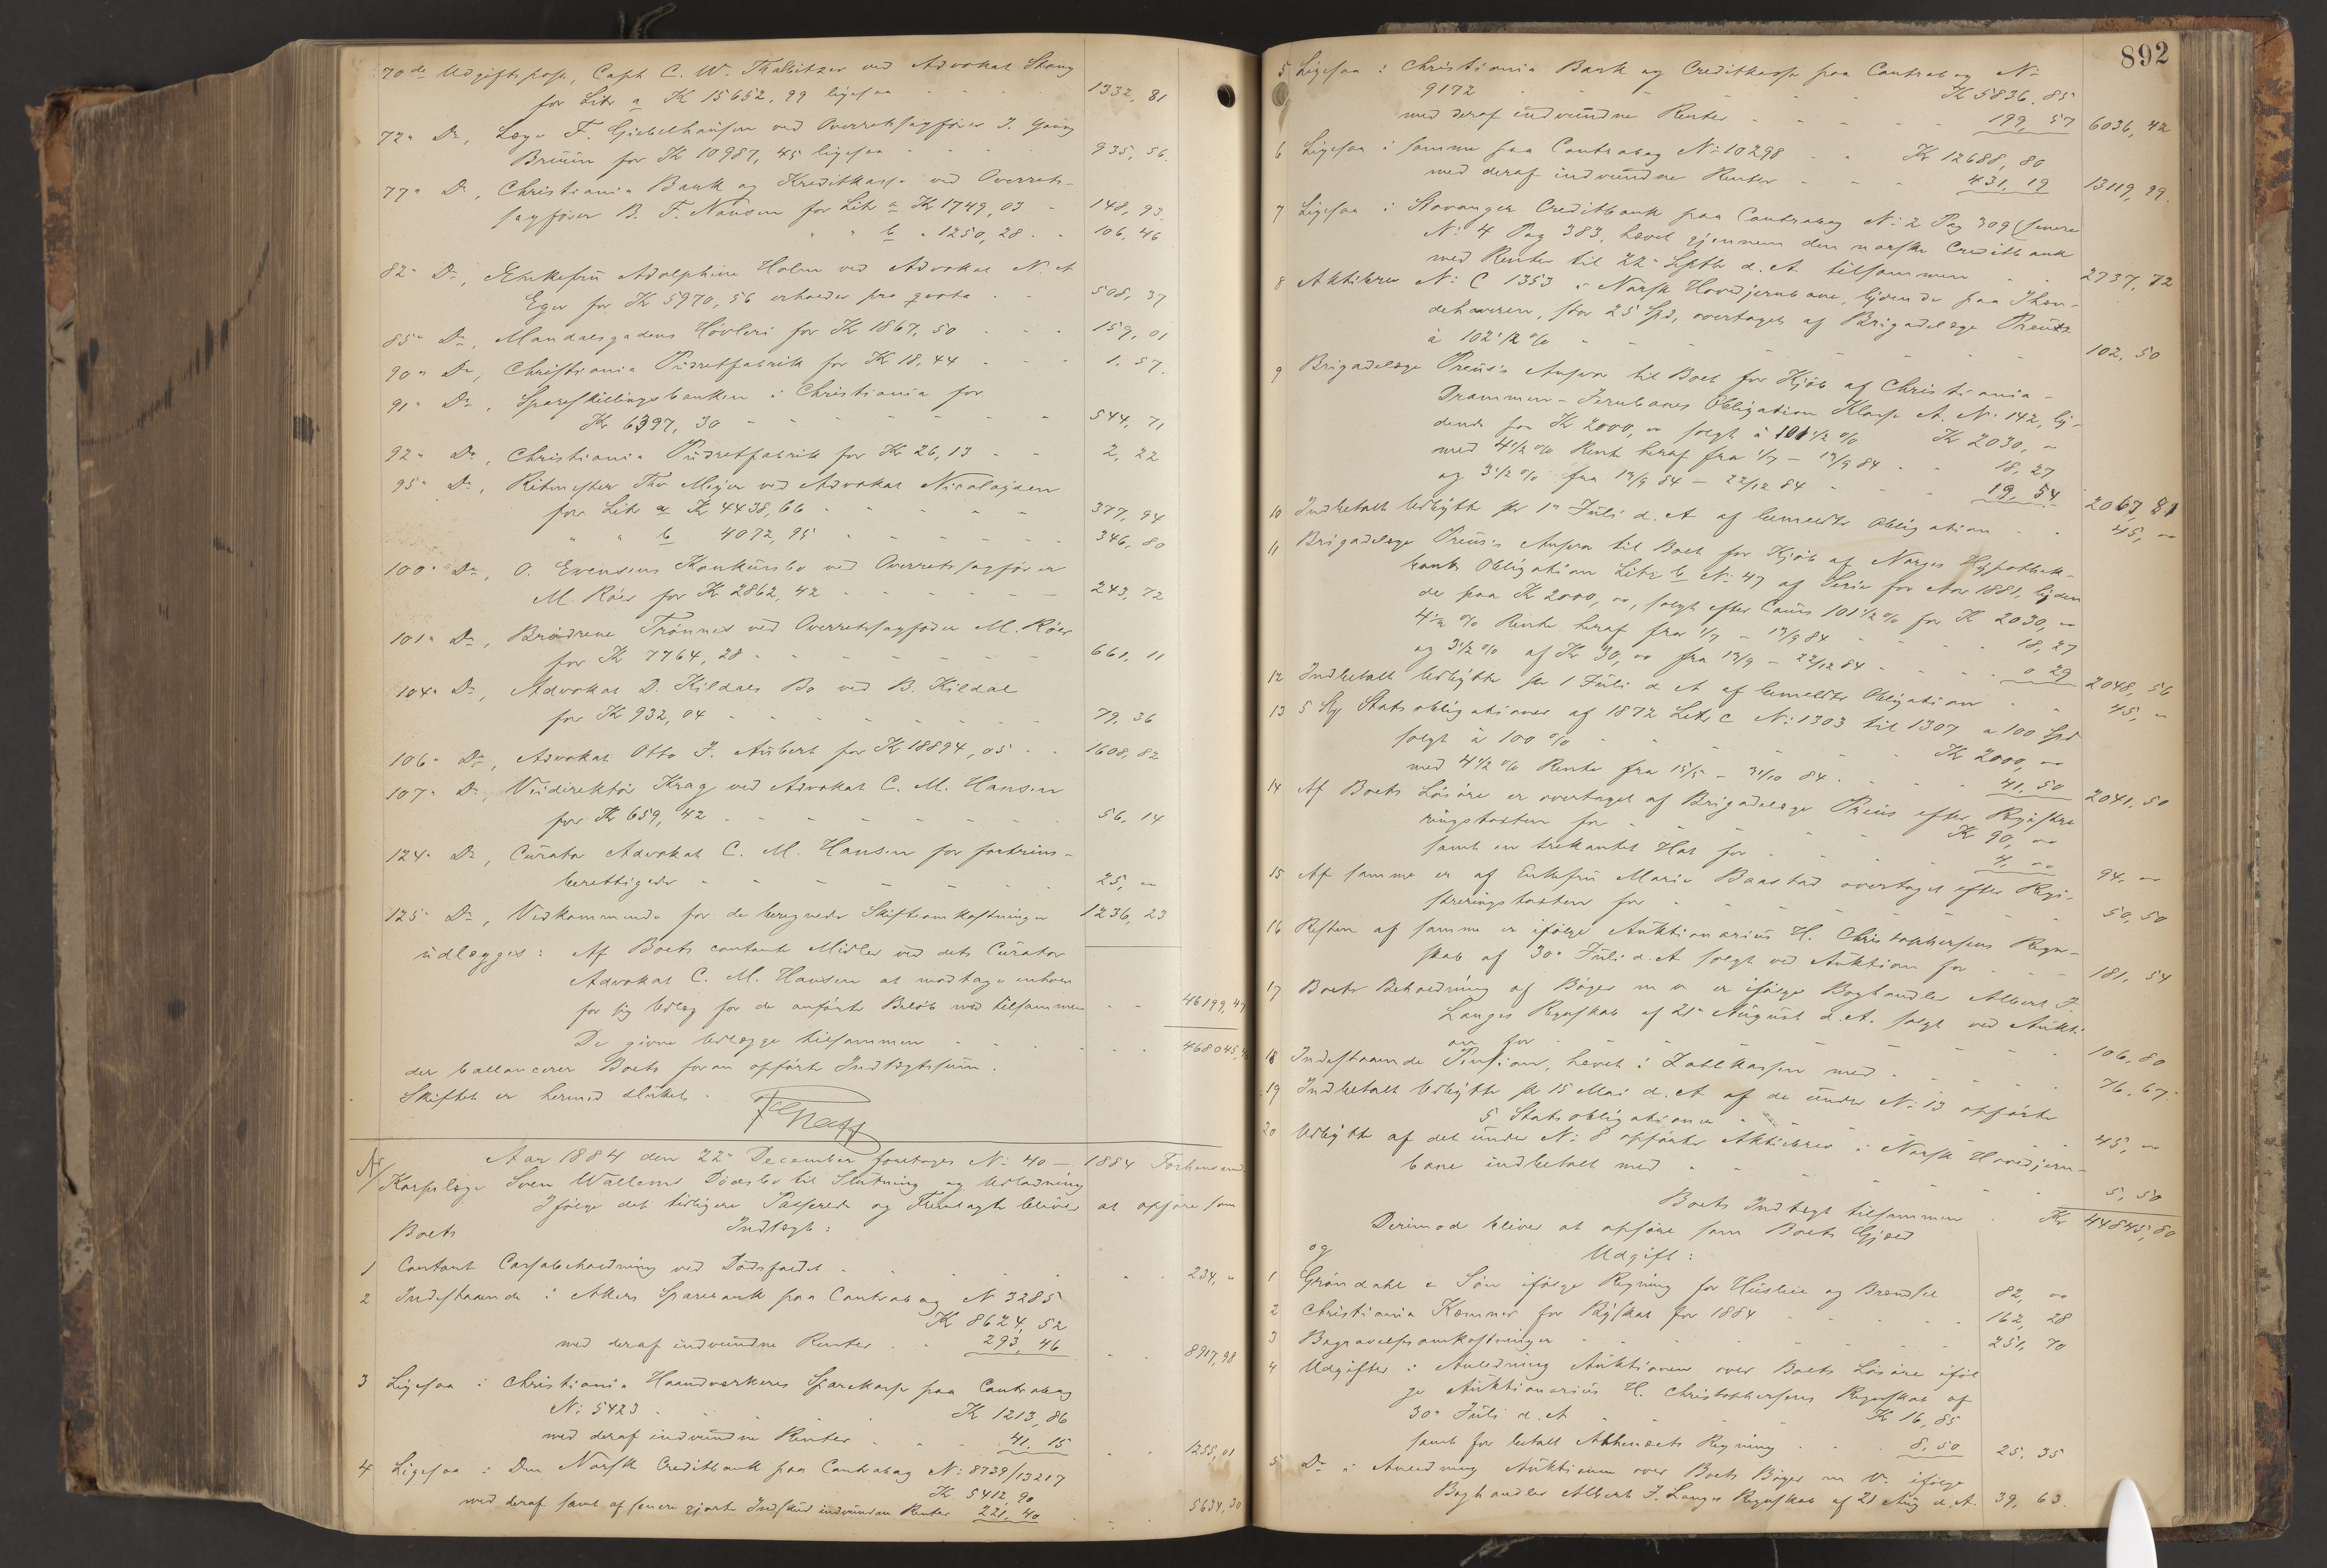 70de Udgiftspost, Capt C. W. Thalbitzer ved Advokat Skaug
for Litr a Kr 15652,99 ligesaa 1332,81
72" Do, Læge F. Giebelhausen ved Overretssagfører J. Young
Bruun for Kr 10987,45 ligesaa 935,56.
77" Do, Christiania Bank og Kreditkasse ved Overrets-
sagfører B. F. Nansen for Litr a Kr 1749,03 148,93.
" " b " 1250,28 106,46
82" Do, Enkefru Adolphine Holm ved Advokat N. A.
Eger for Kr 5970,56 erholder pro qvota 508,37
85" Do, Mandalsgadens Høvleri for Kr 1867,50 159,01
90" Do, Christiania Pudretfabrik for Kr 18,44 1,57.
91" Do, Spareskillingsbanken i Christiania for
Kr 6397,30 544,71
92" Do, Christiania Pudretfabrik for Kr 26,13 2,22
95" Do, Ritmester Thv Meyer ved Advokat Nicolaysen
for Litr a Kr 4438,66 377,94
" " b 4072,95 346,80
100" Do, O. Evensens Konkursbo ved Overretssagfører
M. Röer for Kr 2862,42 243,72
101" Do, Brødrene Trønnes ved Overretssagfører M. Röer
for Kr 7764,28 661,11
104" Do, Advokat D. Kildals Bo ved B. Kildal
for Kr 932,04 79,36
106" Do, Advokat Otto J. Aubert for Kr 18894,05 1608,82
107" Do, Veidirektør Krag ved Advokat C. M. Hansen
for Kr 659,42 56,14
124" Do, Curator Advokat C. M. Hansen for fortrins-
berettigede 25,"
125" Do, Vedkommende for de beregnede Skifteomkostninger 1236,23
udlægges: Af Boets contante Midler ved dets Curator
Advokat C. M. Hansen at modtage enhver
for sig Udlæg for de anførte Beløb med tilsammen 46199,47
De givne Udlægge tilsammen 468045,
der ballancerer Boets foran opførte Indtægtssum.
Skiftet er hermed sluttet.
Aar 1884 den 22" December foretoges No 40 - 1884 Forhenværende
Korpslæge Sven Wallems Dødsbo til Slutning og Udlodning
Ifølge det tidligere Passerede og Fremlagte bliver at opføre som
Boets Indtægt:
1 Contant Cassabeholdning ved Dødsfaldet 234,"
2 Indestaaende i Akers Sparebank paa Contrabog No 3285
Kr 8624,52
med deraf indvundne Renter 293,46 8917,98
3 Ligesaa i Christiania Haandværkeres Sparekasse paa Contrabog
No 5423 Kr 1213,86
med deraf indvundne Renter 41,15 1255,01
4 Ligesaa i Den Norske Creditbank paa Contrabog No 8739/13217
Kr 5412,90
med deraf samt af senere gjorte Indskud indvundne Renter 221,40 5634,30
892
5 Ligesaa i Christiania Bank og Creditkasse paa Contrabog No
9172 Kr 5836,85
med deraf indvundne Renter 199,57 6036,42
6 Ligesaa i samme paa Contrabog No 10298 Kr 12688,80
med deraf indvundne Renter 431,19 13119,99.
7 Ligesaa i Stavanger Creditbank paa Contrabog No 2 Pag 309 (senere
No 4 Pag 383, hævet gjennem den norske Creditbank
med Renter til 22" Septb d. A. tilsammen 2737,72
8 Aktiebrev No C 1353 i Norsk Hovedjernbane, lydende paa Ihæn-
dehaveren, stor 25 Spd, overtaget af Brigadelæge Preus
à 102 1/2 % 102,50
9 Brigadelæge Preus's Ansvar til Boet for Kjøb af Christiania-
Drammen-Jernbanes Obligation Klasse A. No 142, ly-
dende paa Kr 2000,00 solgt à 101 1/2 % Kr 2030,00
med 4 1/2 % Rente heraf fra 1/7 - 12/9 84 18,27
og 3 1/2 % fra 12/9 84 - 22/12 84 19,54 2067,81
10 Indbetalt Udbytte pr 1" Juli d. A. af bemeldte Obligation 45,00
11 Brigadelæge Preus's Ansvar til Boet for Kjøb af Norges Hypothek-
banks Obligation Litr b No 47 af Serie for Aar 1881, lyden
de paa Kr 2000,00, solgt efter Cours 101 1/2 % for Kr 2030,00
4 1/2 % Rente heraf fra 1/7 - 12/9 84 18,27
og 3 1/2 % af Kr 30,00 fra 12/9 - 22/12 84 0,29 2048,56
12 Indbetalt Udbytte pr 1 Juli d. A. af bemeldte Obligation 45,"
13 5 Stk Statsobligationer af 1872 Litr C No 1303 til 1307 a 100 Spd
solgt à 100 % Kr 2000,00
med 4 1/2 % Rente fra 15/5 - 31/10 84 41,50 2041,50
14 Af Boets Løsøre er overtaget af Brigadelæge Preus efter Registre
ringstaxten for Kr 90,00
samt en trekantet Hat for 4,00 94,00
15 Af samme er af Enkefru Marie Baastad overtaget efter Regi-
streringstaxten for 50,50
16 Resten af samme er ifølge Auktionarius H. Christophersens Regn-
skab af 30" Juli d. A. solgt ved Auktion for 181,54
17 Boets Beholdning af Bøger m v er ifølge Boghandler Albert J.
Langes Regnskab af 21" August d. A. solgt ved Aukti-
on for 106,80
18 Indestaaende Pension, hævet i Zahlkassen med 76,67.
19 Indbetalt Udbytte pr 15 Mai d. A. af de under No 13 opførte
5 Statsobligationer 45,00
20 Udbytte af det under No 8 opførte Aktiebrev i Norsk Hovedjern-
bane indbetalt med 5,50
Boets Indtægt tilsammen Kr 44845,80
Derimod bliver at opføre som Boets Gjæld
og Udgift:
1 Grøndahl & Søn ifølge Regning for Husleie og Brændsel 82,00
2 Christiania Kemner for Byskat for 1884 162,28
3 Begravelsesomkostninger 251,70
4 Udgifter i Anledning Auktionen over Boets Løsøre iføl
ge Auktionarius H. Christophersens Regnskab af
30" Juli d. A. Kr 16,85
samt for betalt Regning 8,50 25,35
5 Do i Anledning Auktionen over Boets Bøger m V. ifølge
Boghandler Albert J. Langes Regnskab af 21 Aug d. A. 39,63.